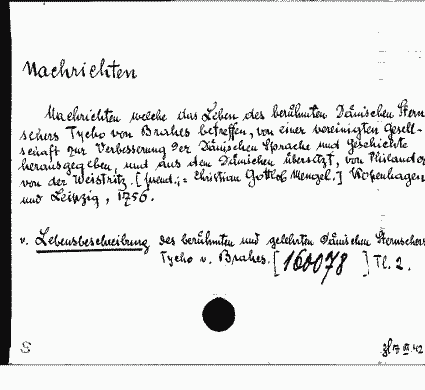 Nachrichten
Nachrichten welche das Leben des berühmten Dänischen Stern
sehers Tycho von Brahes betreffen, von einer vereinigten Gesell-
schaft zur Verbesserung der Dänischen Sprache und Geschichte
herausgegeben, und aus dem Dänischen übersetzt, von Philander
von der Weistritz. [pseud.; = Christian Gottlob Mengel.] Kopenhagen
und Leipzig, 1756.
v. Lebensbeschreibung des berühmten und gelehrten Dänischen Sternsehers
Tycho v. Brahes. [160078] Tl. 2.
S